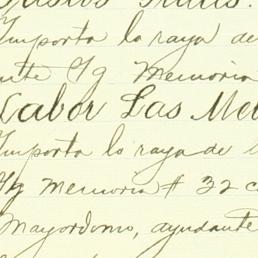 Importa la raya de
Memoria
Labor Las Me
Importa la raya de
Memoria # 32 c
Mayordomo, ayudante